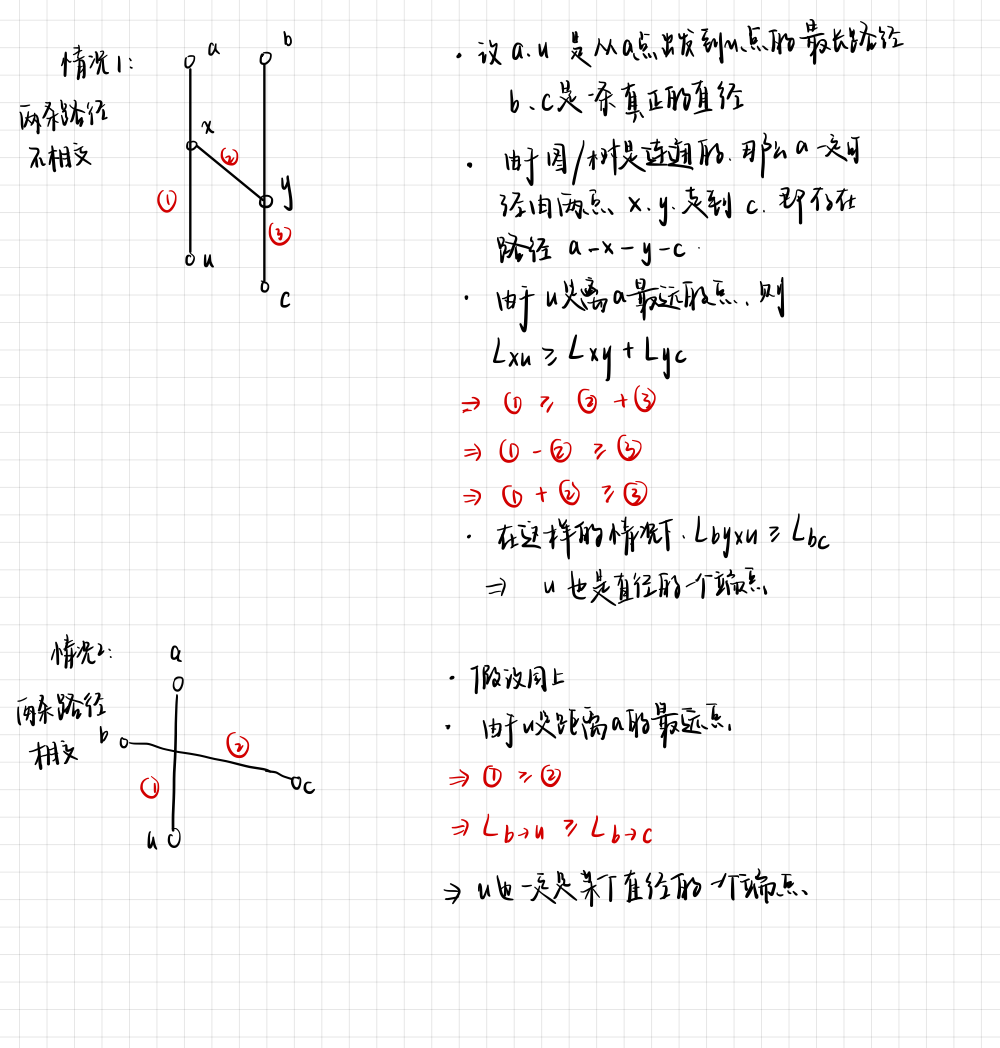 情况1:
两条路径
不相交
a
b
x
②
①
y
③
u
c
· 设a.u 是从a点出发到u点的最长路径
b、c是一条真正的直径
· 由于图/树是连通的.那么a一定可
经由两点、x.y.走到c.即存在
路径 a-x-y-c.
· 由于u是离a最远的点.则
Lxu ≥ Lxy + Lyc
⇒ ① ≥ ② + ③
⇒ ① - ② ≥ ③
⇒ ① + ② ≥ ③
· 在这样的情况下.Lbyxu ≥ Lbc
⇒ u也是直径的一个端点
情况2:
两条路径
相交
a
b
②
①
c
u
· 假设同上
· 由于u是距离a的最远点.
⇒ ① ≥ ②
⇒ Lb→u ≥ Lb→c
⇒ u也一定是某个直径的一个端点.